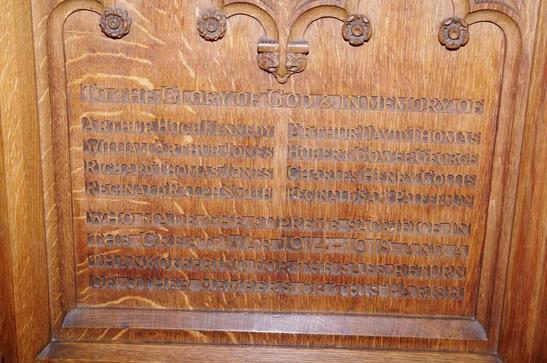 TO THE GLORY OF GOD & IN MEMORY OF
ARTHUR HUGH KENNEDY ARTHUR DAVID THOMAS
WILLIAM ARTHUR JONES HUBERT GOWER GEORGE
RICHARD THOMAS JONES CHARLES HENRY
REGINALD RALPH SMITH REGINALD PATEMAN
WHO MADE THE SUPREME SACRIFICE IN
THE GREAT WAR 1914-1918 AND A
THANKOFFERING FOR THE SAFE RETURN
OF OTHER MEMBERS OF THIS PARISH